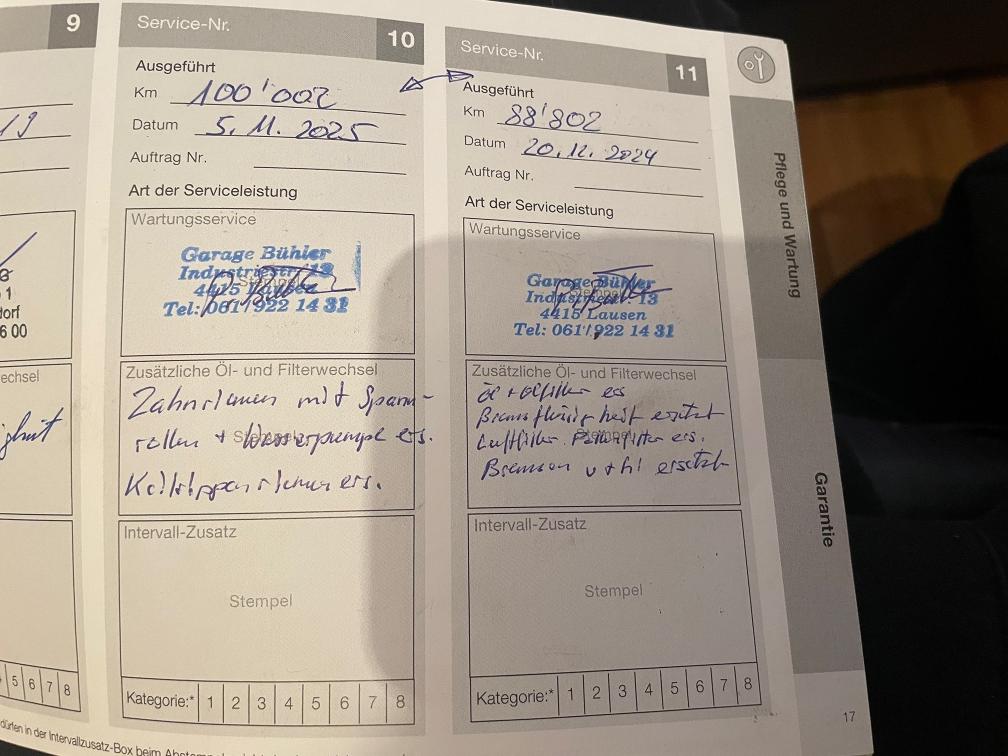 9
19
1
dorf
6 00
echsel
5 6 7 8
Service-Nr. 10
Ausgeführt
Km 100'002
Datum 5.11.2025
Auftrag Nr.
Art der Serviceleistung
Wartungsservice
Garage Bühler
Industriestr. 13
4415 Lausen
Tel: 061/922 14 31
Zusätzliche Öl- und Filterwechsel
Zahnriemen mit Spann-
rollen + Wasserpumpe ers.
Keilrippenriemen ers.
Stempel
Intervall-Zusatz
Stempel
Kategorie:* 1 2 3 4 5 6 7 8
Service-Nr. 11
Ausgeführt
Km 88'802
Datum 20.12.2024
Auftrag Nr.
Art der Serviceleistung
Wartungsservice
Stempel
Garage Bühler
Industriestr. 13
4415 Lausen
Tel: 061/922 14 31
Zusätzliche Öl- und Filterwechsel
Öl + Ölfilter ers
Bremsflüssigkeit ersetzt
Luftfilter Pollenfilter ers.
Bremsen v + hi ersetzt
Stempel
Intervall-Zusatz
Stempel
Kategorie:* 1 2 3 4 5 6 7 8
Pflege und Wartung
Garantie
17
dürfen in der Intervallzusatz-Box beim